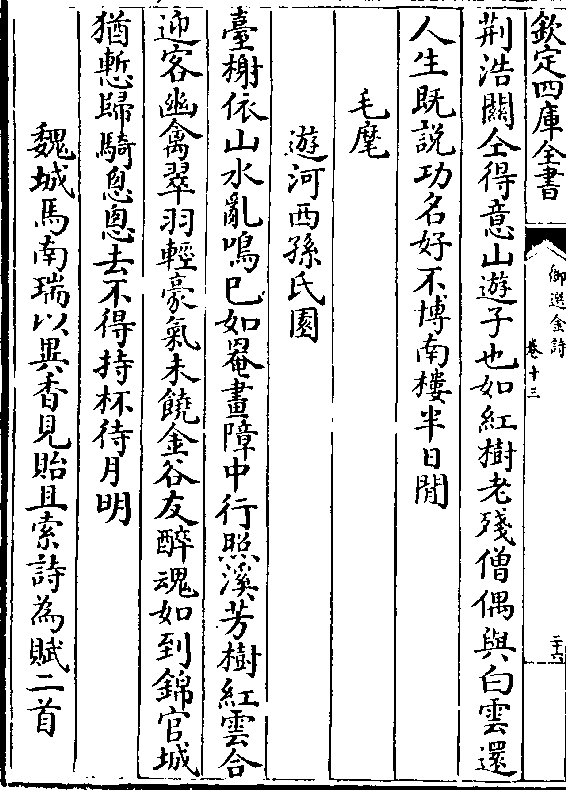 欽定四庫全書
御選金詩
卷十三
二十六
荆浩關仝得意山遊子也如紅樹老殘僧偶與白雲還
人生既說功名好不博南樓半日閒
毛麾
遊河西孫氏園
臺榭依山水亂鳴已如罨畫障中行照溪芳樹紅雲合
迎客幽禽翠羽輕豪氣未饒金谷友醉魂如到錦官城
猶慙歸騎悤悤去不得持杯待月明
魏城馬南瑞以異香見貽且索詩為賦二首